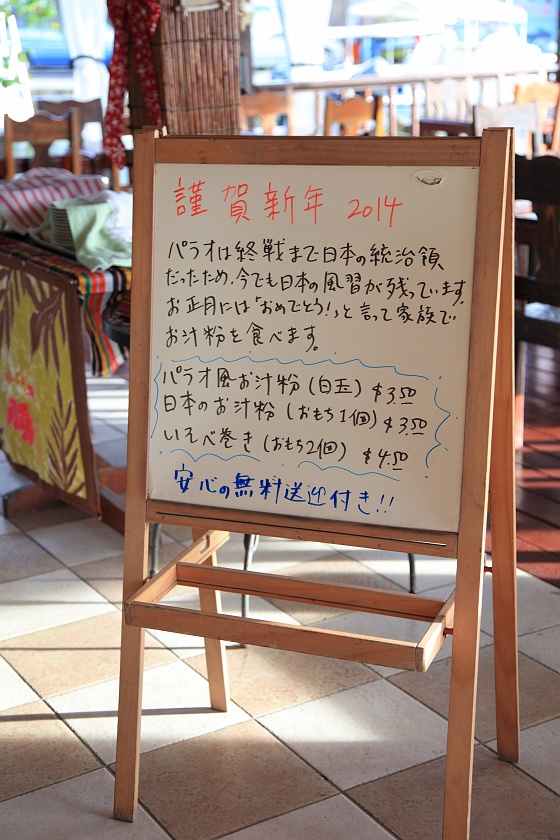 謹賀新年 2014
パラオは終戦まで日本の統治領
だったため、今でも日本の風習が残っています。
お正月には「おめでとう!」と言って家族で
お汁粉を食べます。
パラオ風お汁粉 (白玉) $3.50
日本のお汁粉 (おもち1個) $3.50
いそべ巻き (おもち2個) $4.50
安心の無料送迎付き!!